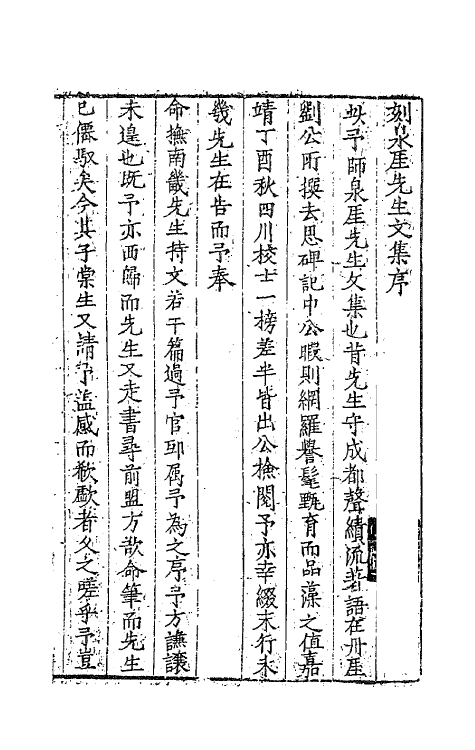 刻泉厓先生文集序
此予師泉厓先生文集也昔先生守成都聲績流著語在丹厓
劉公所撰去思碑記中公暇則網羅譽髦甄育而品藻之值嘉
靖丁酉秋四川校士一榜差半皆出公檢閱予亦幸綴末行未
幾先生在告而予奉
命撫南畿先生持文若干篇過予官邸屬予為之序予方謙讓
未遑也既予亦西歸而先生又走書尋前盟方欲命筆而先生
已僊馭矣今其子棠生又請予益感而欷歔者久之嗟乎予豈